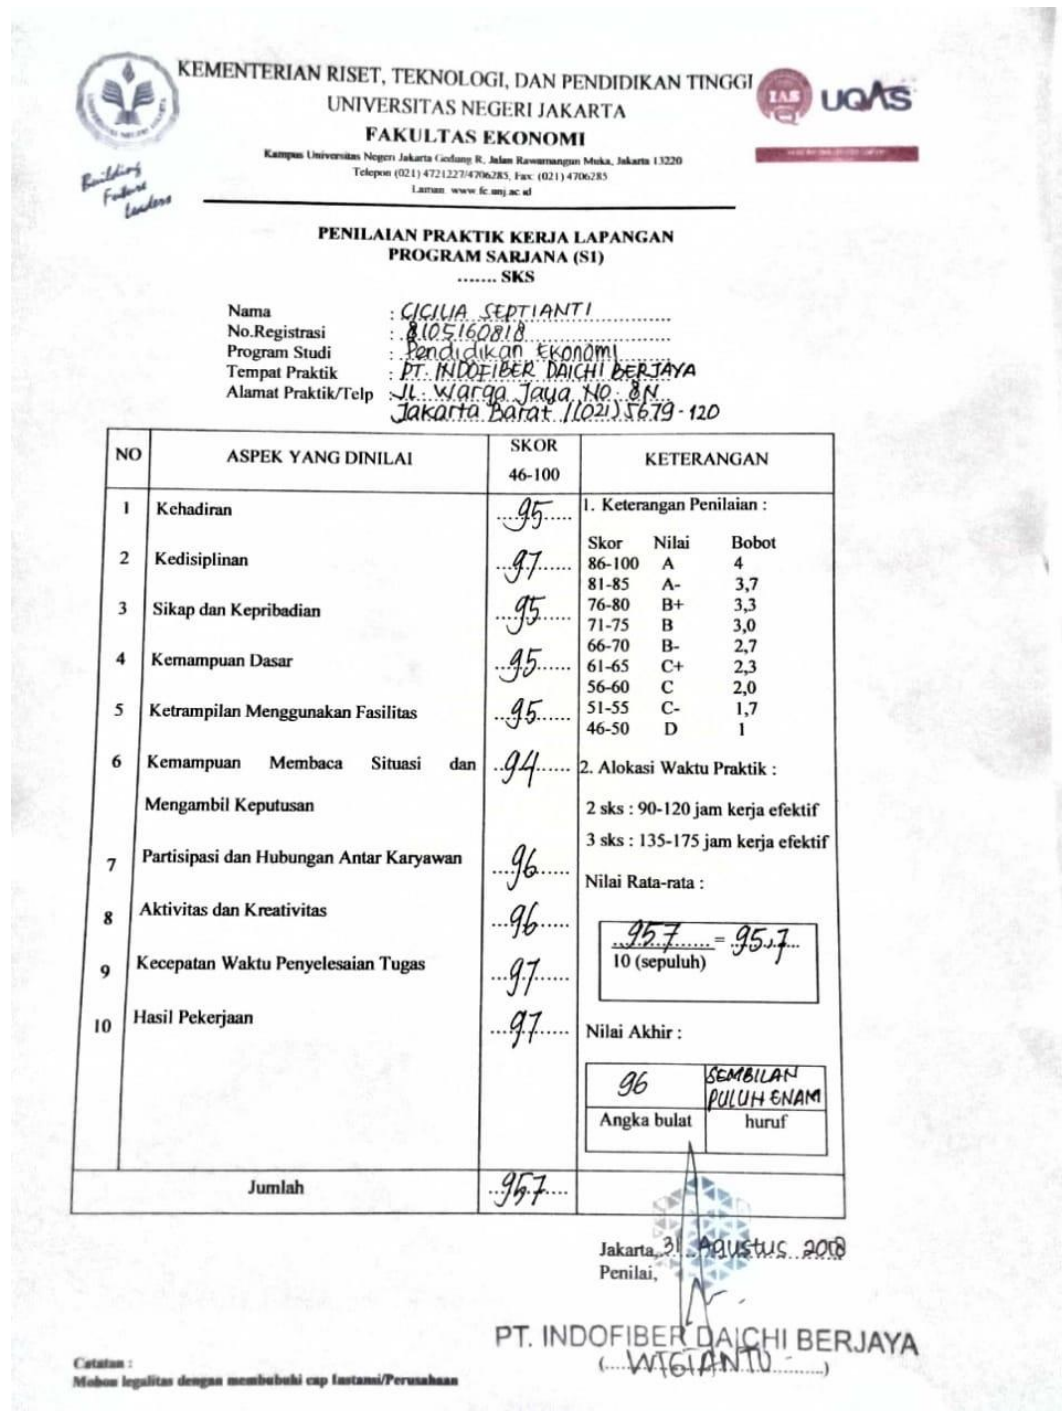 KEMENTERIAN RISET, TEKNOLOGI, DAN PENDIDIKAN TINGGI
UNIVERSITAS NEGERI JAKARTA
FAKULTAS EKONOMI
Kampus Universitas Negeri Jakarta Gedung R, Jalan Rawamangun Muka, Jakarta 13220
Telepon (021) 4721227/4706285, Fax: (021) 4706285
Laman: www.fe.unj.ac.id
Building
Future
Leaders
IAS
UQAS
PENILAIAN PRAKTIK KERJA LAPANGAN
PROGRAM SARJANA (S1)
....... SKS
Nama : CICILIA SEPTIANTI
No.Registrasi : 8105160818
Program Studi : Pendidikan Ekonomi
Tempat Praktik : PT. INDOFIBER DAICHI BERJAYA
Alamat Praktik/Telp : JL. Warga Jaya NO. 8N
Jakarta Barat /(021) 5679-120
NO ASPEK YANG DINILAI SKOR 46-100 KETERANGAN
1 Kehadiran 95
2 Kedisiplinan 97
3 Sikap dan Kepribadian 95
4 Kemampuan Dasar 95
5 Ketrampilan Menggunakan Fasilitas 95
6 Kemampuan Membaca Situasi dan 94
Mengambil Keputusan
7 Partisipasi dan Hubungan Antar Karyawan 96
8 Aktivitas dan Kreativitas 96
9 Kecepatan Waktu Penyelesaian Tugas 97
10 Hasil Pekerjaan 97
1. Keterangan Penilaian :
Skor Nilai Bobot
86-100 A 4
81-85 A- 3,7
76-80 B+ 3,3
71-75 B 3,0
66-70 B- 2,7
61-65 C+ 2,3
56-60 C 2,0
51-55 C- 1,7
46-50 D 1
2. Alokasi Waktu Praktik :
2 sks : 90-120 jam kerja efektif
3 sks : 135-175 jam kerja efektif
Nilai Rata-rata :
957 = 95,7
10 (sepuluh)
Nilai Akhir :
96 SEMBILAN
PULUH ENAM
Angka bulat huruf
Jumlah 957
Jakarta, 31 Agustus 2018
Penilai,
PT. INDOFIBER DAICHI BERJAYA
(....WIGIANTU......)
Catatan :
Mohon legalitas dengan membubuhi cap Instansi/Perusahaan